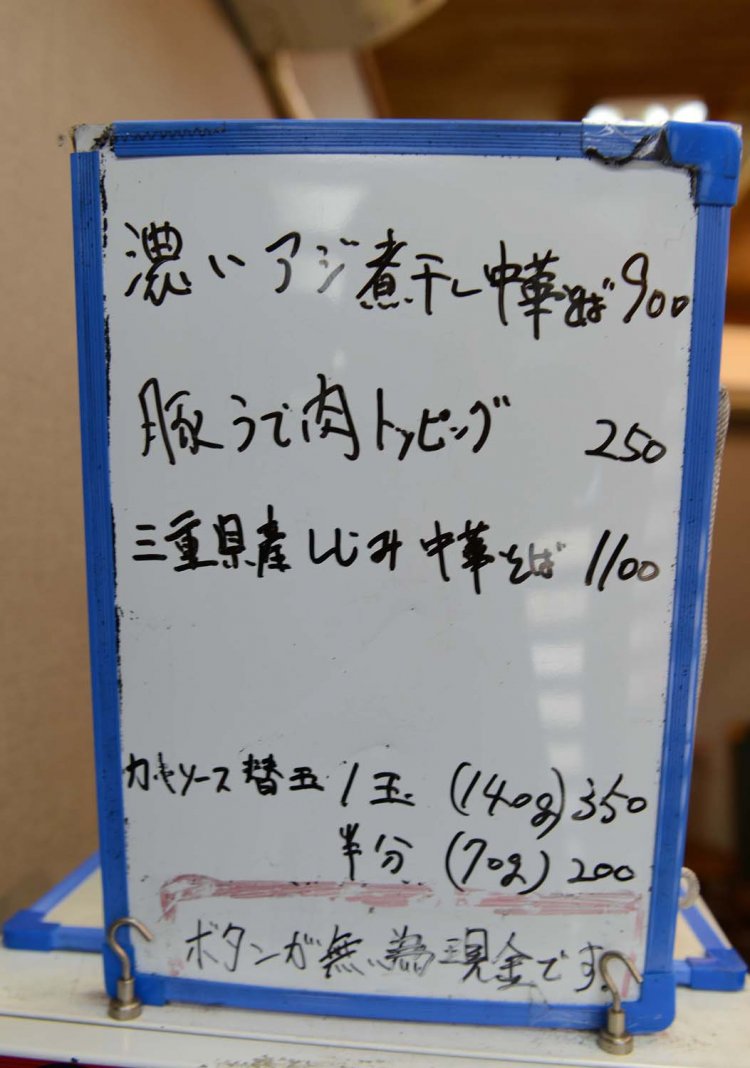 濃いアジ煮干し中華そば 900
豚うで肉トッピング 250
三重県産しじみ中華そば 1100
カキソース替玉 1玉 (140g) 350
半分 (70g) 200
ボタンが無い為現金です。